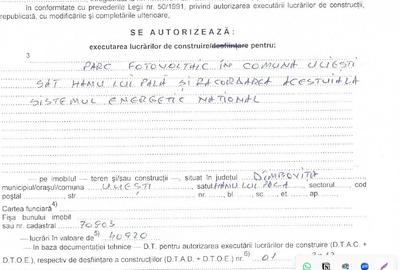 în conformitate cu prevederile Legii nr. 50/1991, privind autorizarea executării lucrărilor de construcții,
republicată, cu modificările și completările ulterioare,
SE AUTORIZEAZĂ:
executarea lucrărilor de construire/desființare pentru:
3
PARC FOTOVOLTAIC ÎN COMUNA ULIEȘTI
SAT HANU LUI PALĂ ȘI RACORDAREA ACESTUIA LA
SISTEMUL ENERGETIC NAȚIONAL
- pe imobilul - teren și/sau construcții -, situat în județul DÎMBOVIȚA
municipiul/orașul/comuna ULIEȘTI, satul HANU LUI PALA, sectorul, cod
poștal, str. nr., bl., sc., et., ap.
Cartea funciară 4)
Fișa bunului imobil
sau nr. cadastral 70903
- lucrări în valoare de 5)
- în baza documentației tehnice - D.T. pentru autorizarea executării lucrărilor de construire (D.T.A.C. +
D.T.O.E.), respectiv de desființare a construcțiilor (D.T.A.D. + D.T.O.E.) nr. 6) 01